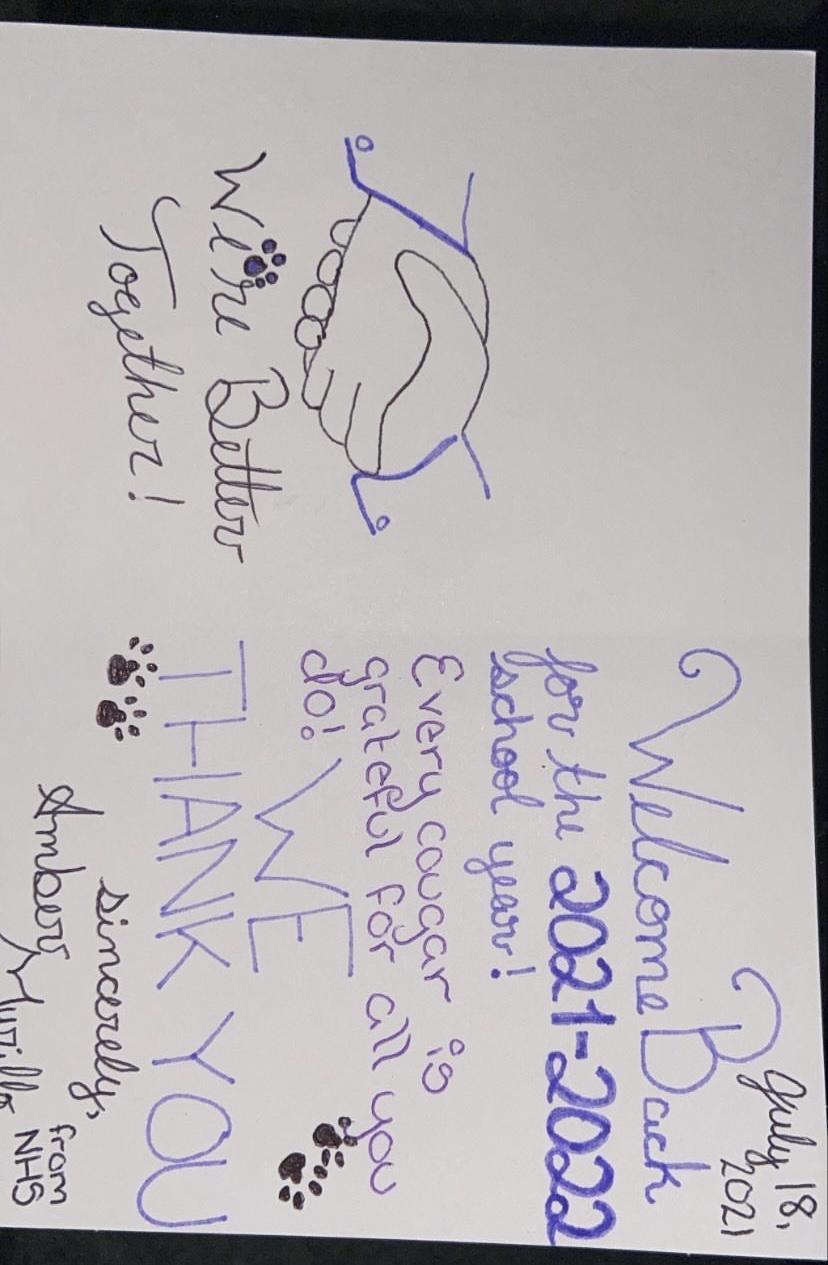 We're Better
Together!
July 18,
2021
Welcome Back
for the 2021-2022
school year!
Every cougar is
grateful for all you
do!
WE
THANK YOU
sincerely,
Amber Murillo
from
NHS